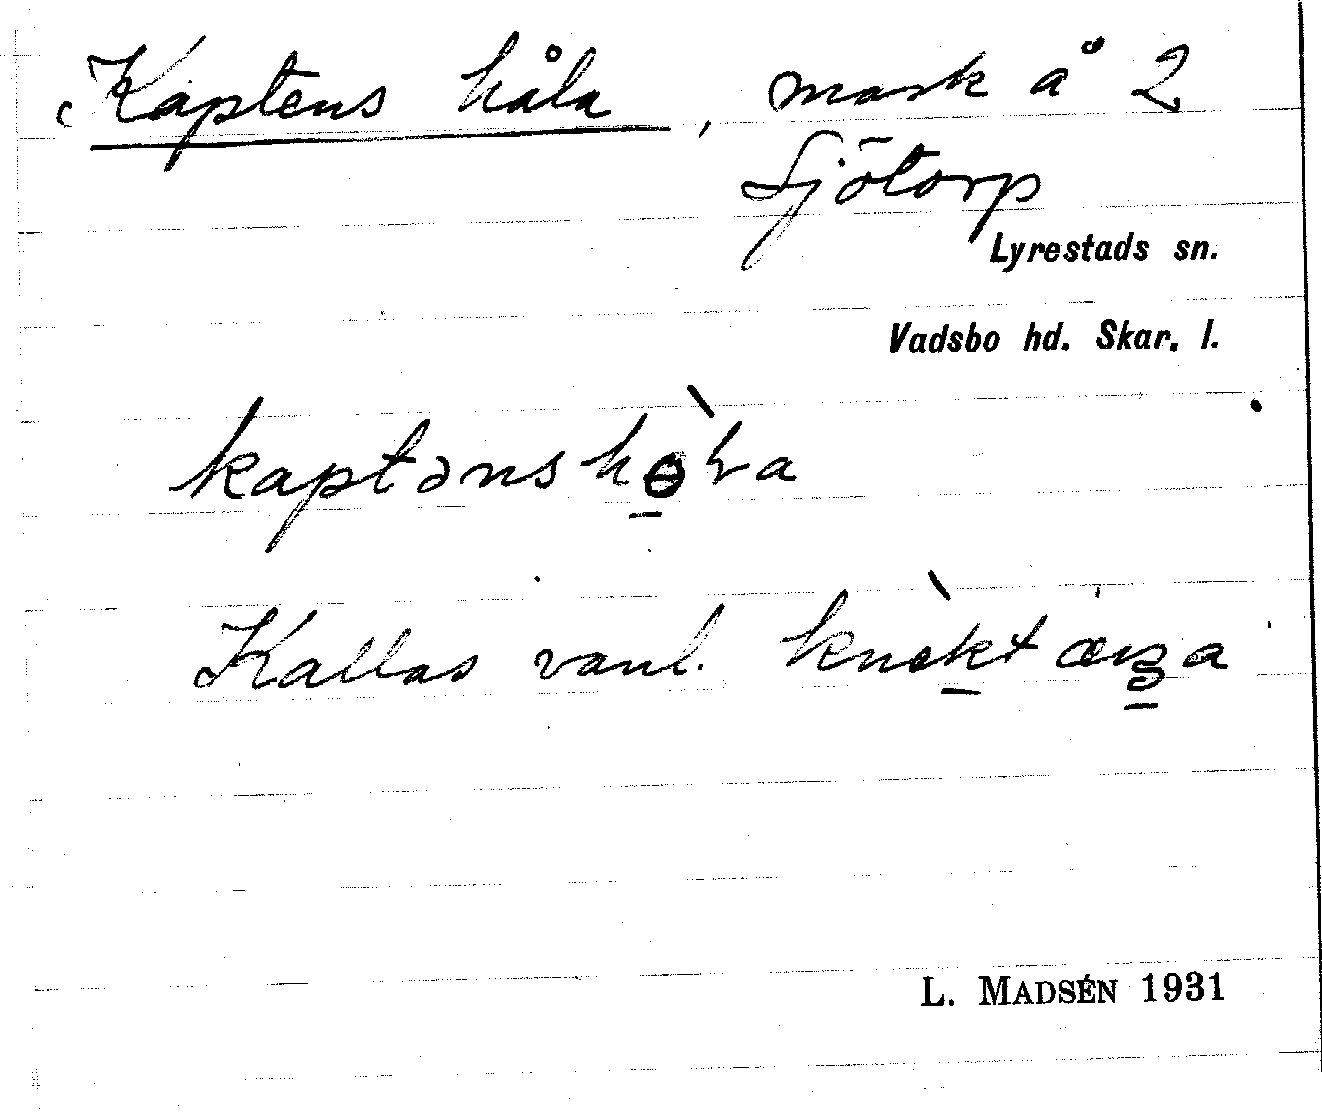 Kaptens håla, mark å 2
Sjötorp
Lyrestads sn.
Vadsbo hd. Skar. l.
kaptənshɵ̀ɫa
Kallas vanl.
L. MADSÉN 1931